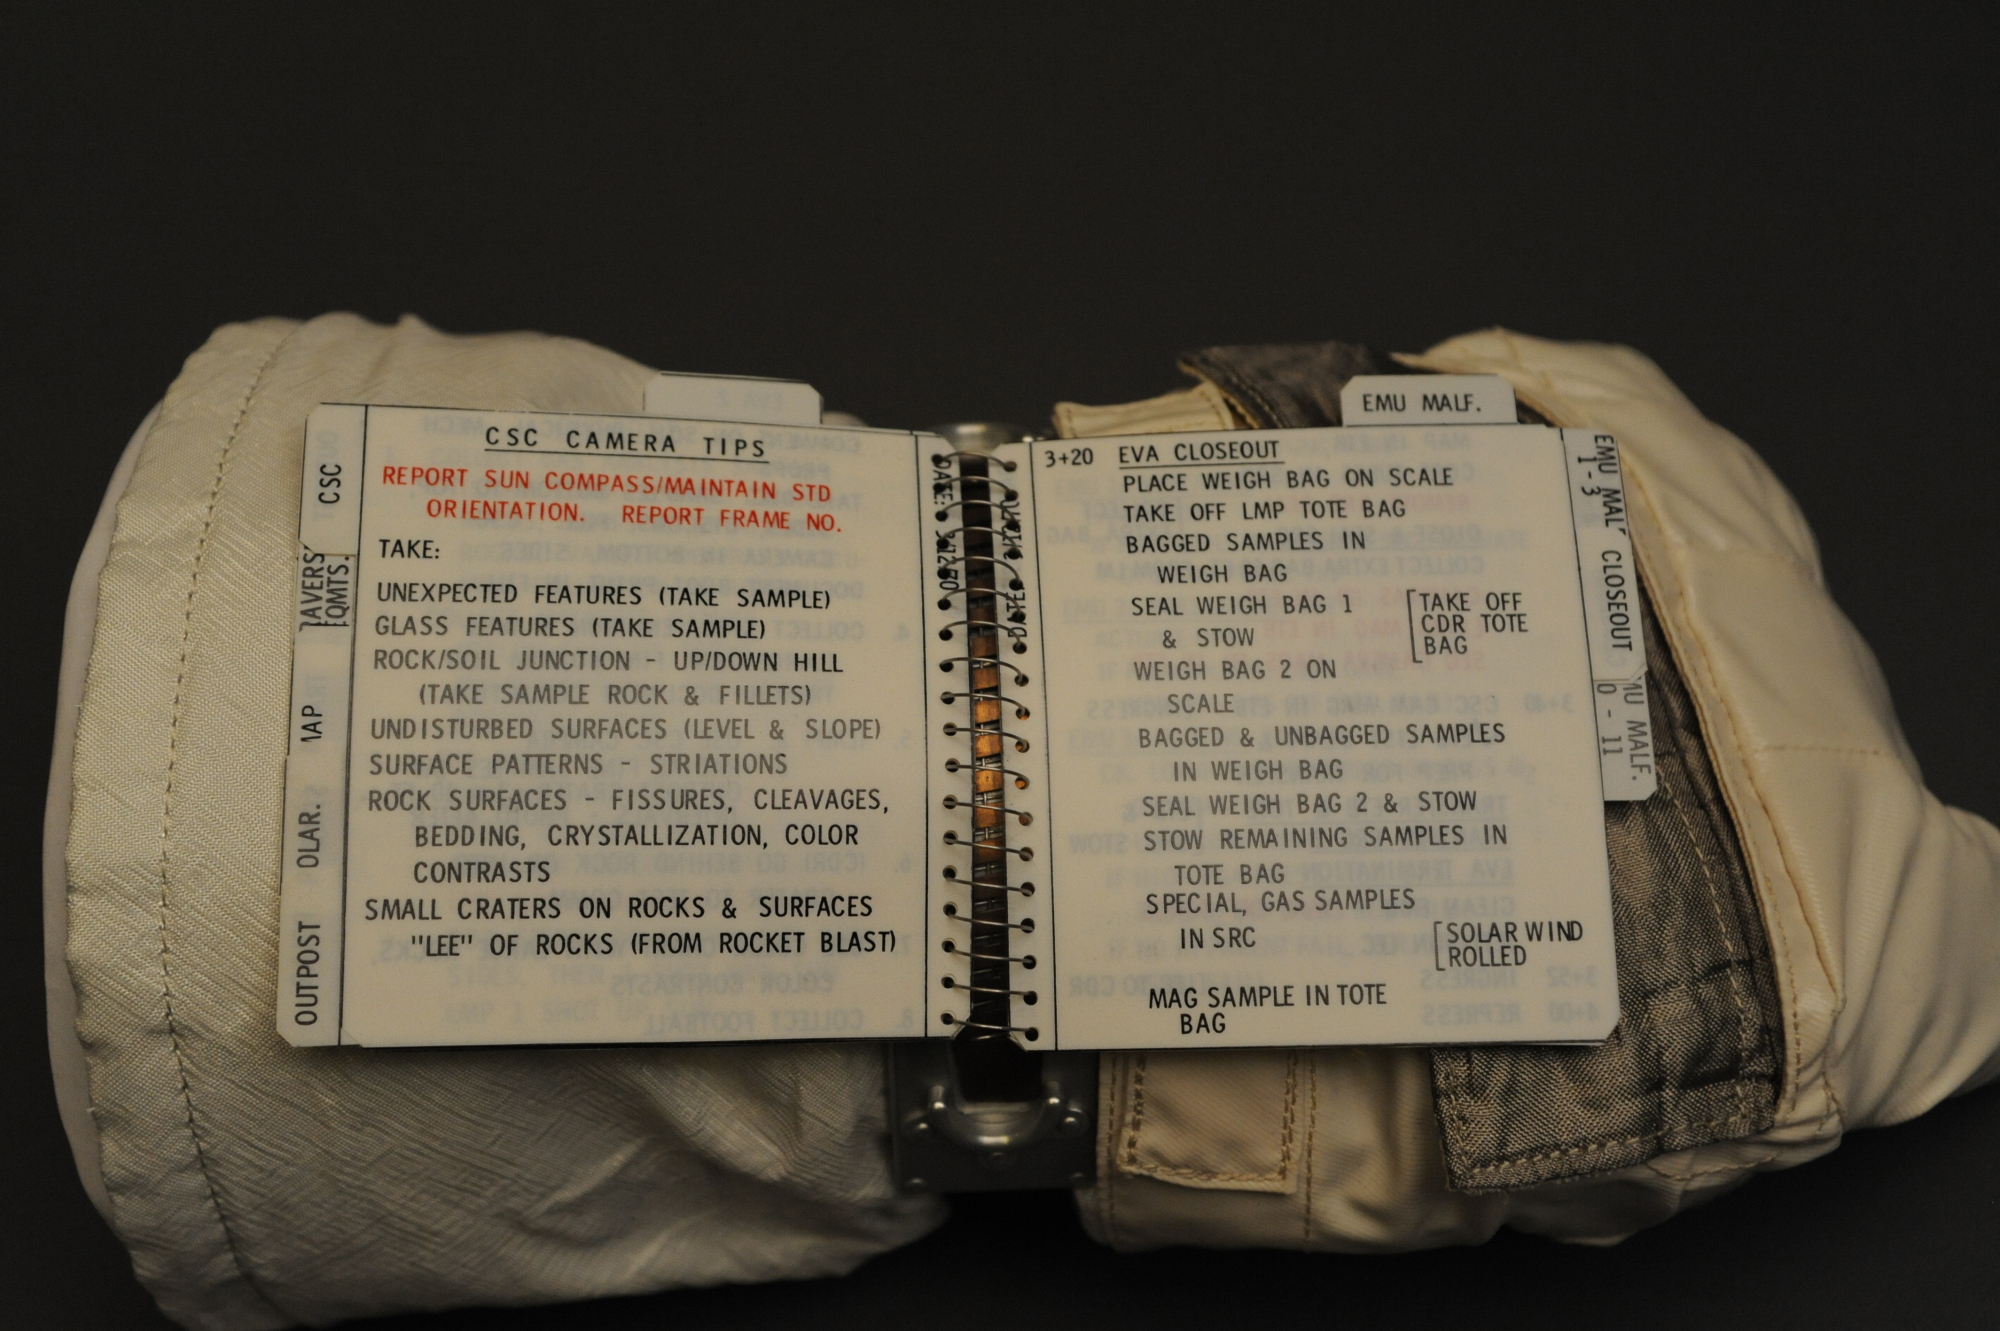 CSC CAMERA TIPS
REPORT SUN COMPASS/MAINTAIN STD
ORIENTATION. REPORT FRAME NO.
TAKE:
UNEXPECTED FEATURES (TAKE SAMPLE)
GLASS FEATURES (TAKE SAMPLE)
ROCK/SOIL JUNCTION - UP/DOWN HILL
(TAKE SAMPLE ROCK & FILLETS)
UNDISTURBED SURFACES (LEVEL & SLOPE)
SURFACE PATTERNS - STRIATIONS
ROCK SURFACES - FISSURES, CLEAVAGES,
BEDDING, CRYSTALLIZATION, COLOR
CONTRASTS
SMALL CRATERS ON ROCKS & SURFACES
"LEE" OF ROCKS (FROM ROCKET BLAST)
CSC
POLAR.
OUTPOST
DATE:
EMU MALF.
3+20 EVA CLOSEOUT
PLACE WEIGH BAG ON SCALE
TAKE OFF LMP TOTE BAG
BAGGED SAMPLES IN
WEIGH BAG
SEAL WEIGH BAG 1 [TAKE OFF
& STOW CDR TOTE
BAG
WEIGH BAG 2 ON
SCALE
BAGGED & UNBAGGED SAMPLES
IN WEIGH BAG
SEAL WEIGH BAG 2 & STOW
STOW REMAINING SAMPLES IN
TOTE BAG
SPECIAL, GAS SAMPLES
IN SRC [SOLAR WIND
ROLLED
MAG SAMPLE IN TOTE
BAG
EMU MALF
1 - 3
CLOSEOUT
MU MALF.
0 - 11